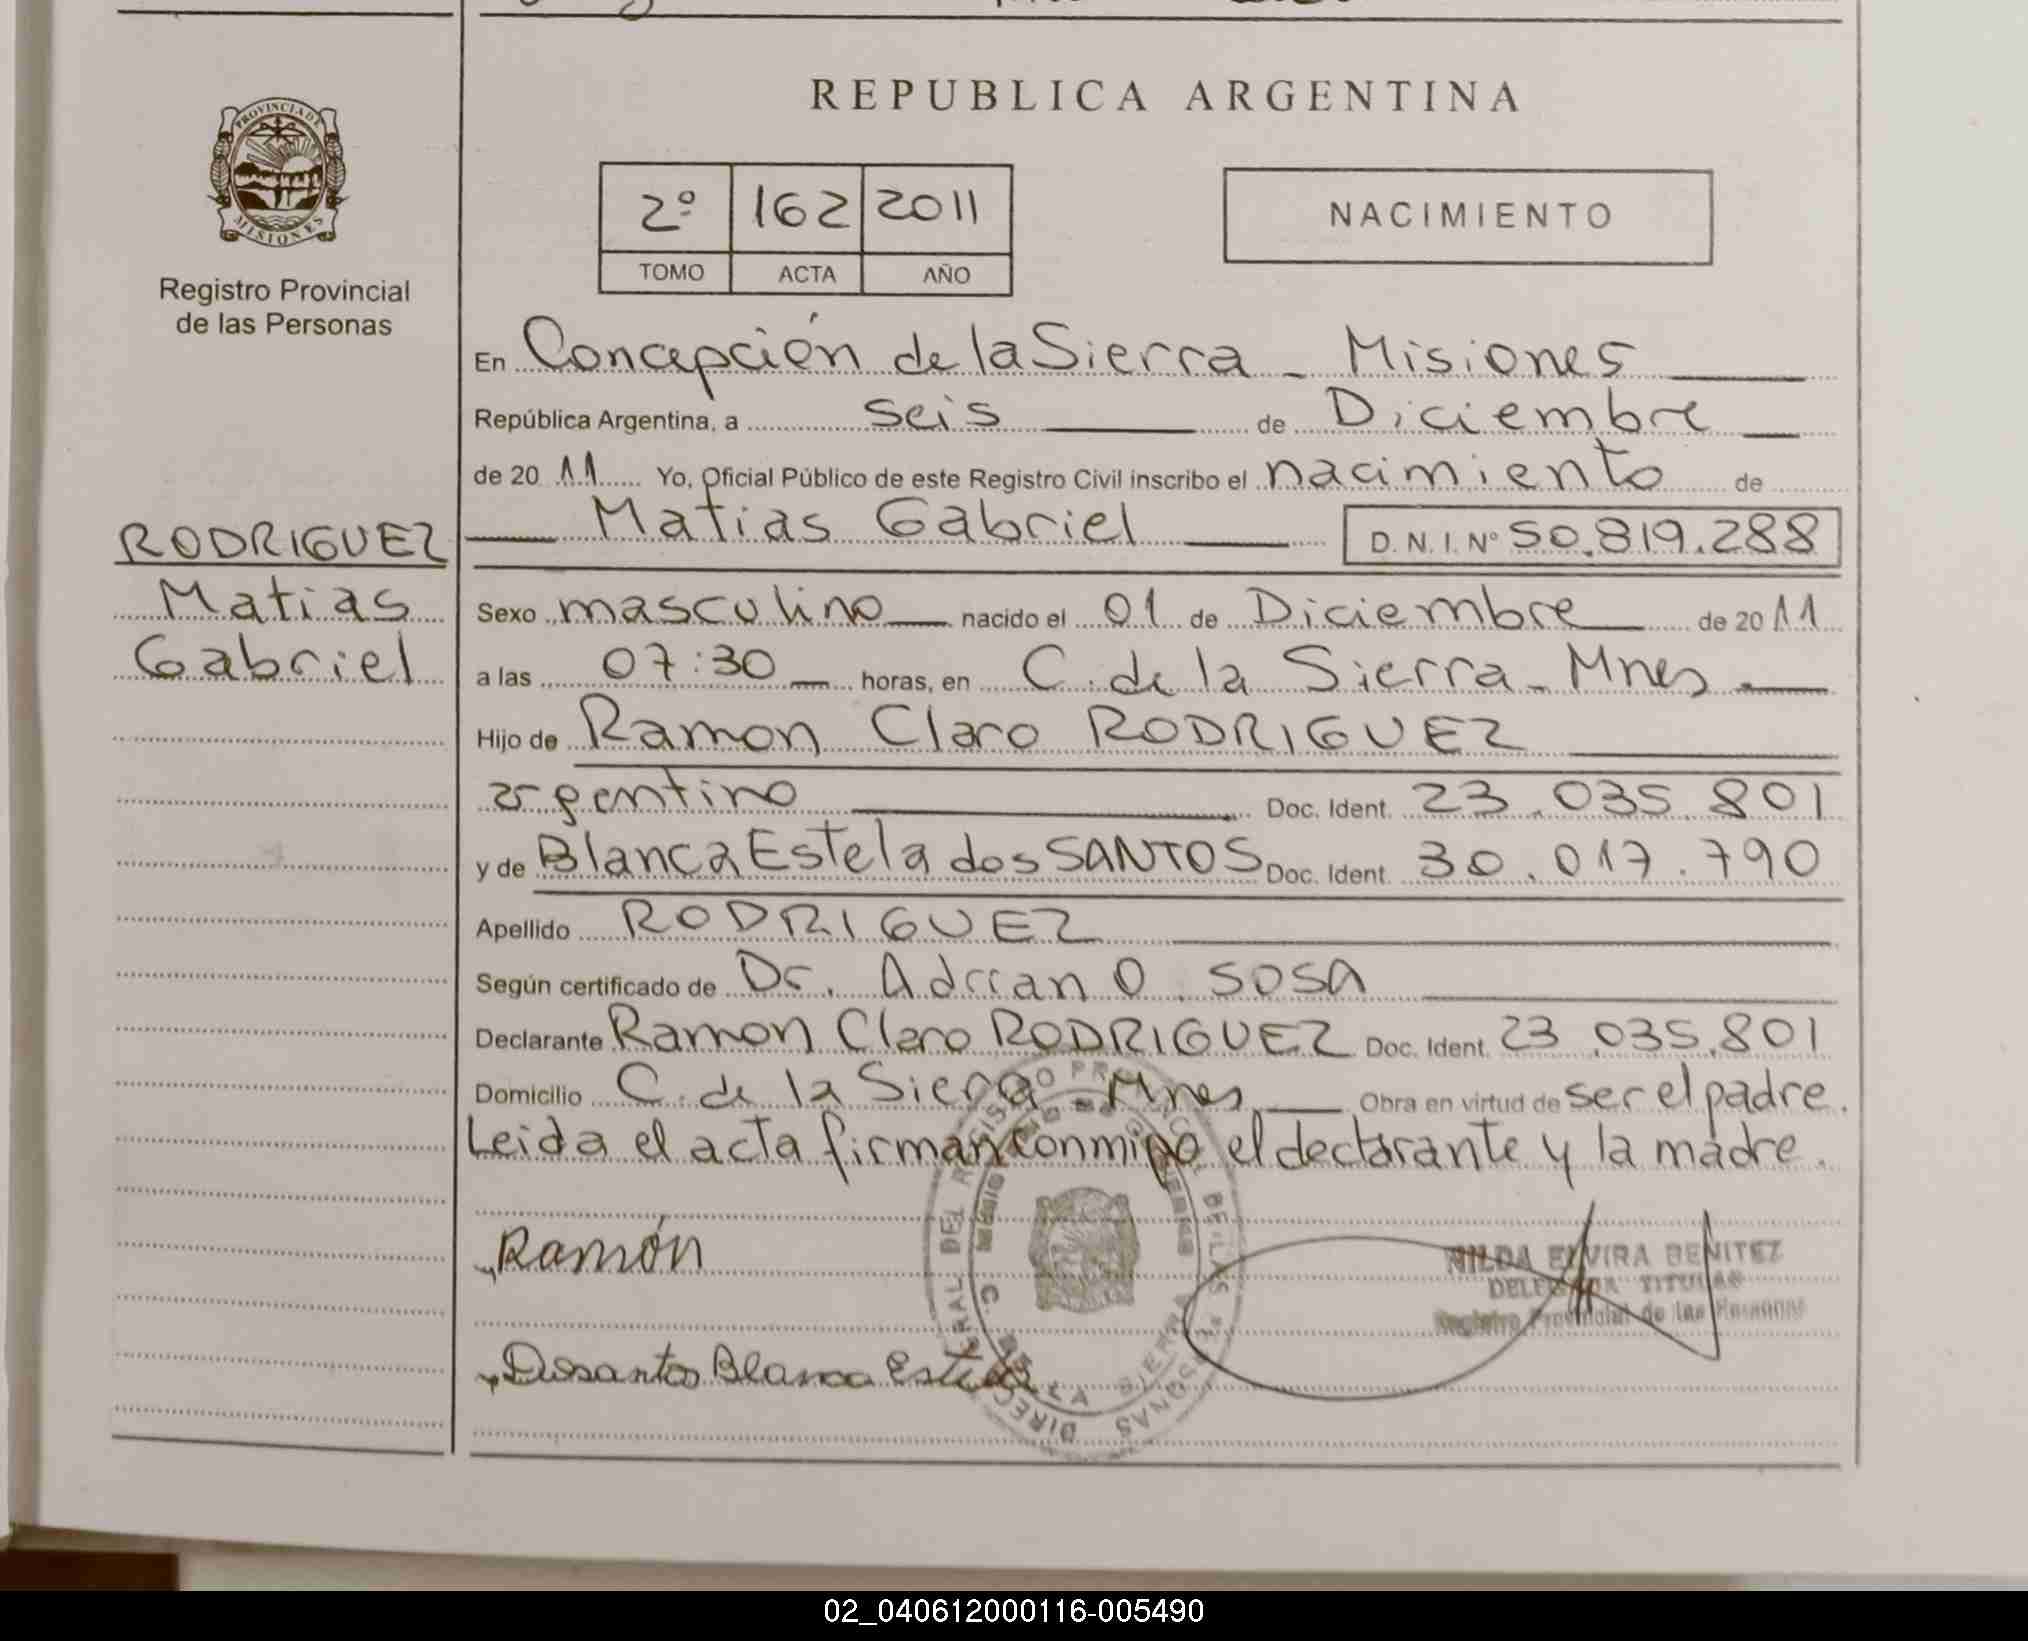 REPUBLICA ARGENTINA
PROVINCIA DE
MISIONES
Registro Provincial
de las Personas
2º 162 2011
TOMO ACTA AÑO
NACIMIENTO
RODRIGUEZ
Matias
Gabriel
En Concepción de la Sierra - Misiones
República Argentina, a seis de Diciembre
de 2011 Yo, Oficial Público de este Registro Civil inscribo el nacimiento de
Matias Gabriel D.N.I. Nº 50.819.288
Sexo masculino nacido el 01 de Diciembre de 2011
a las 07:30 horas, en C. de la Sierra - Mnes
Hijo de Ramon Claro RODRIGUEZ
argentino Doc. Ident. 23.035.801
y de Blanca Estela dos SANTOS Doc. Ident. 30.017.790
Apellido RODRIGUEZ
Según certificado de Dr. Adrian O. SOSA
Declarante Ramon Claro RODRIGUEZ Doc. Ident. 23.035.801
Domicilio C. de la Sierra - Mnes Obra en virtud de ser el padre.
Leida el acta firman conmigo el declarante y la madre.
Ramón
NILDA ELVIRA BENITEZ
DELEGADA TITULAR
Registro Provincial de las Personas
Dosantos Blanca Estela
02_040612000116-005490